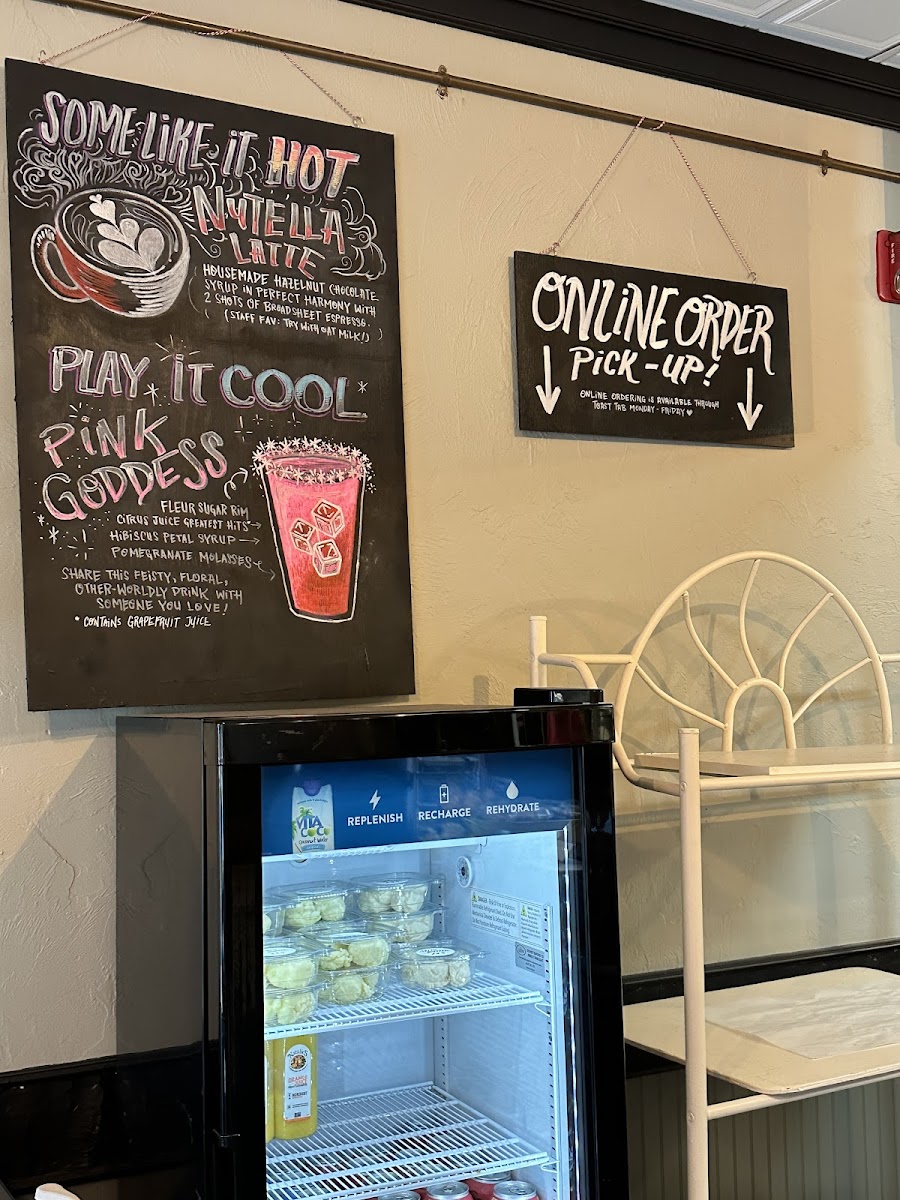 SOME LIKE iT HOT
NUTELLA
LATTE
HOUSEMADE HAZELNUT CHOCOLATE
SYRUP IN PERFECT HARMONY WITH
2 SHOTS OF BROADSHEET ESPRESSO.
(STAFF FAV: TRY WITH OAT MiLK!)
PLAY iT COOL
PiNK
GODDESS
FLEUR SUGAR RIM
CITRUS JUICE GREATEST HITS
HiBISCUS PETAL SYRUP
POMEGRANATE MOLASSES
SHARE THIS FEISTY, FLORAL,
OTHER-WORLDLY DRINK WITH
SOMEONE YOU LOVE!
* CONTAINS GRAPEFRUIT JUICE
ONLiNE ORDER
PiCK-UP!
ONLINE ORDERING IS AVAILABLE THROUGH
TOAST TAB MONDAY - FRIDAY ♥
FIRE
VITA
COCO
REPLENISH
RECHARGE
REHYDRATE
DANGER
ORANGE